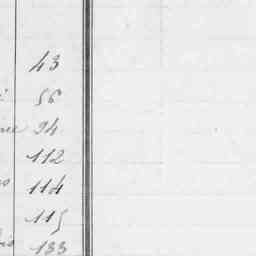 43
56
94
112
114
115
133